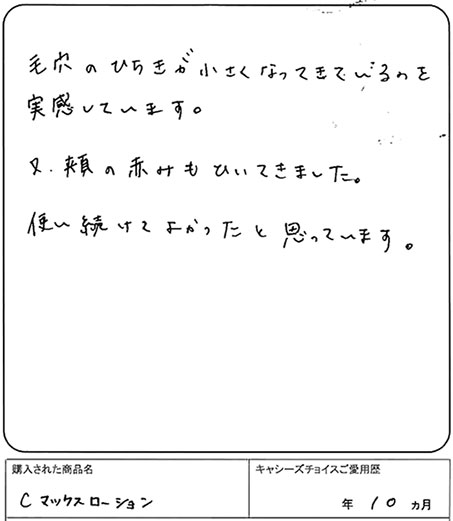 毛穴のひらきが小さくなってきているのを
実感しています。
又、頬の赤みもひいてきました。
使い続けてよかったと思っています。
購入された商品名
キャシーズチョイスご愛用歴
Cマックスローション
年 10 ヵ月